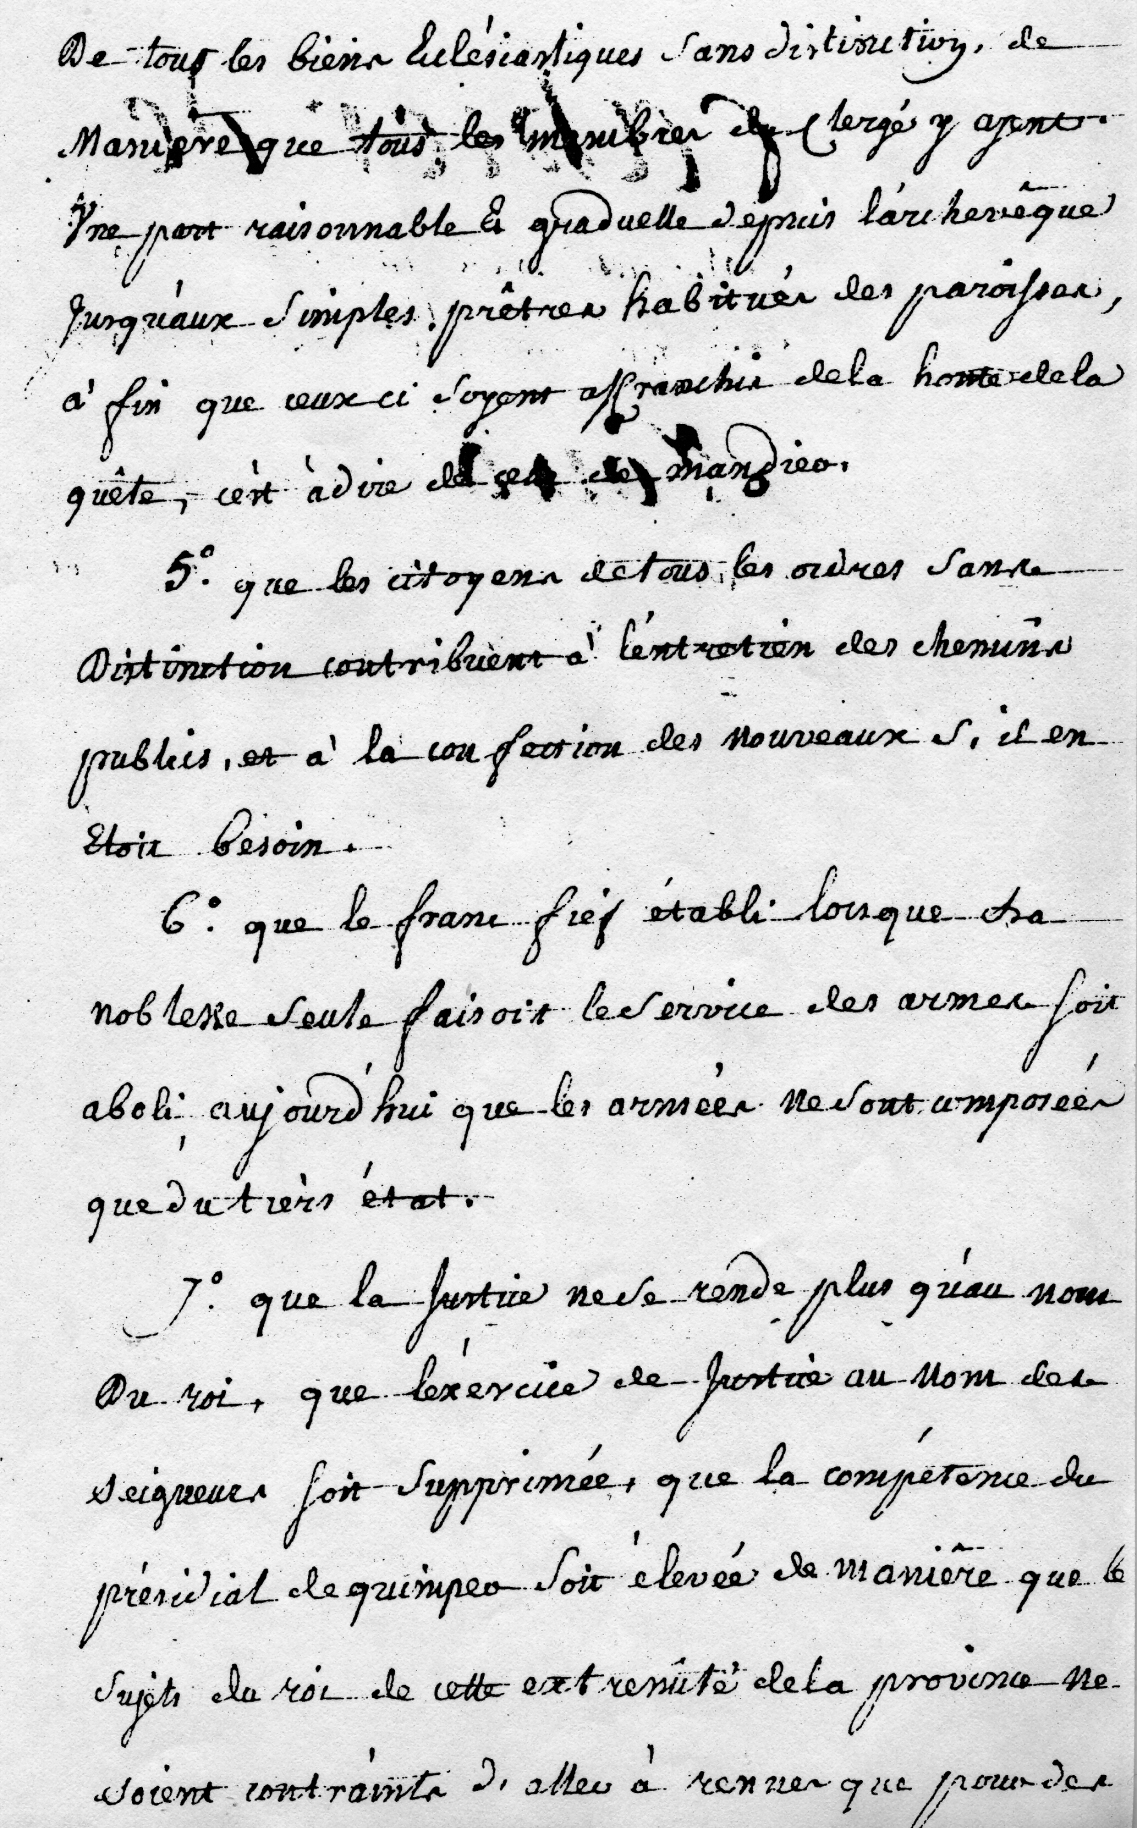 De tous les biens Eclésiastiques sans distinction, de
Maniere que tous les membres du Clergé y ayent
Une part raisonnable Et graduelle depuis l'archevêque
Jusqu'aux simples prêtres habitués des paroisses,
à fin que ceux ci soyent affranchis de la honte de la
quête, c'est à dire de celle de mandier.
5°. que les citoyens de tous les ordres sans
Distinction contribuent à l'éntretien des chemins
publics, et à la confection des nouveaux s, il en
Etoit besoin.
6°. que le franc fief établi lorsque la
noblesse seule faisoit le service des armes soit
aboli aujourd'hui que les armées ne sont composées
que du tièrs état.
7°. que la Justice ne se rende plus qu'au nom
Du roi, que l'éxercice de Justice au nom des
seigneurs soit supprimée, que la compétence du
présidial de quimper soit élevée de maniêre que le
sujets du roi de cette extremité de la province ne
soient contraints d, aller à rennes que pour des